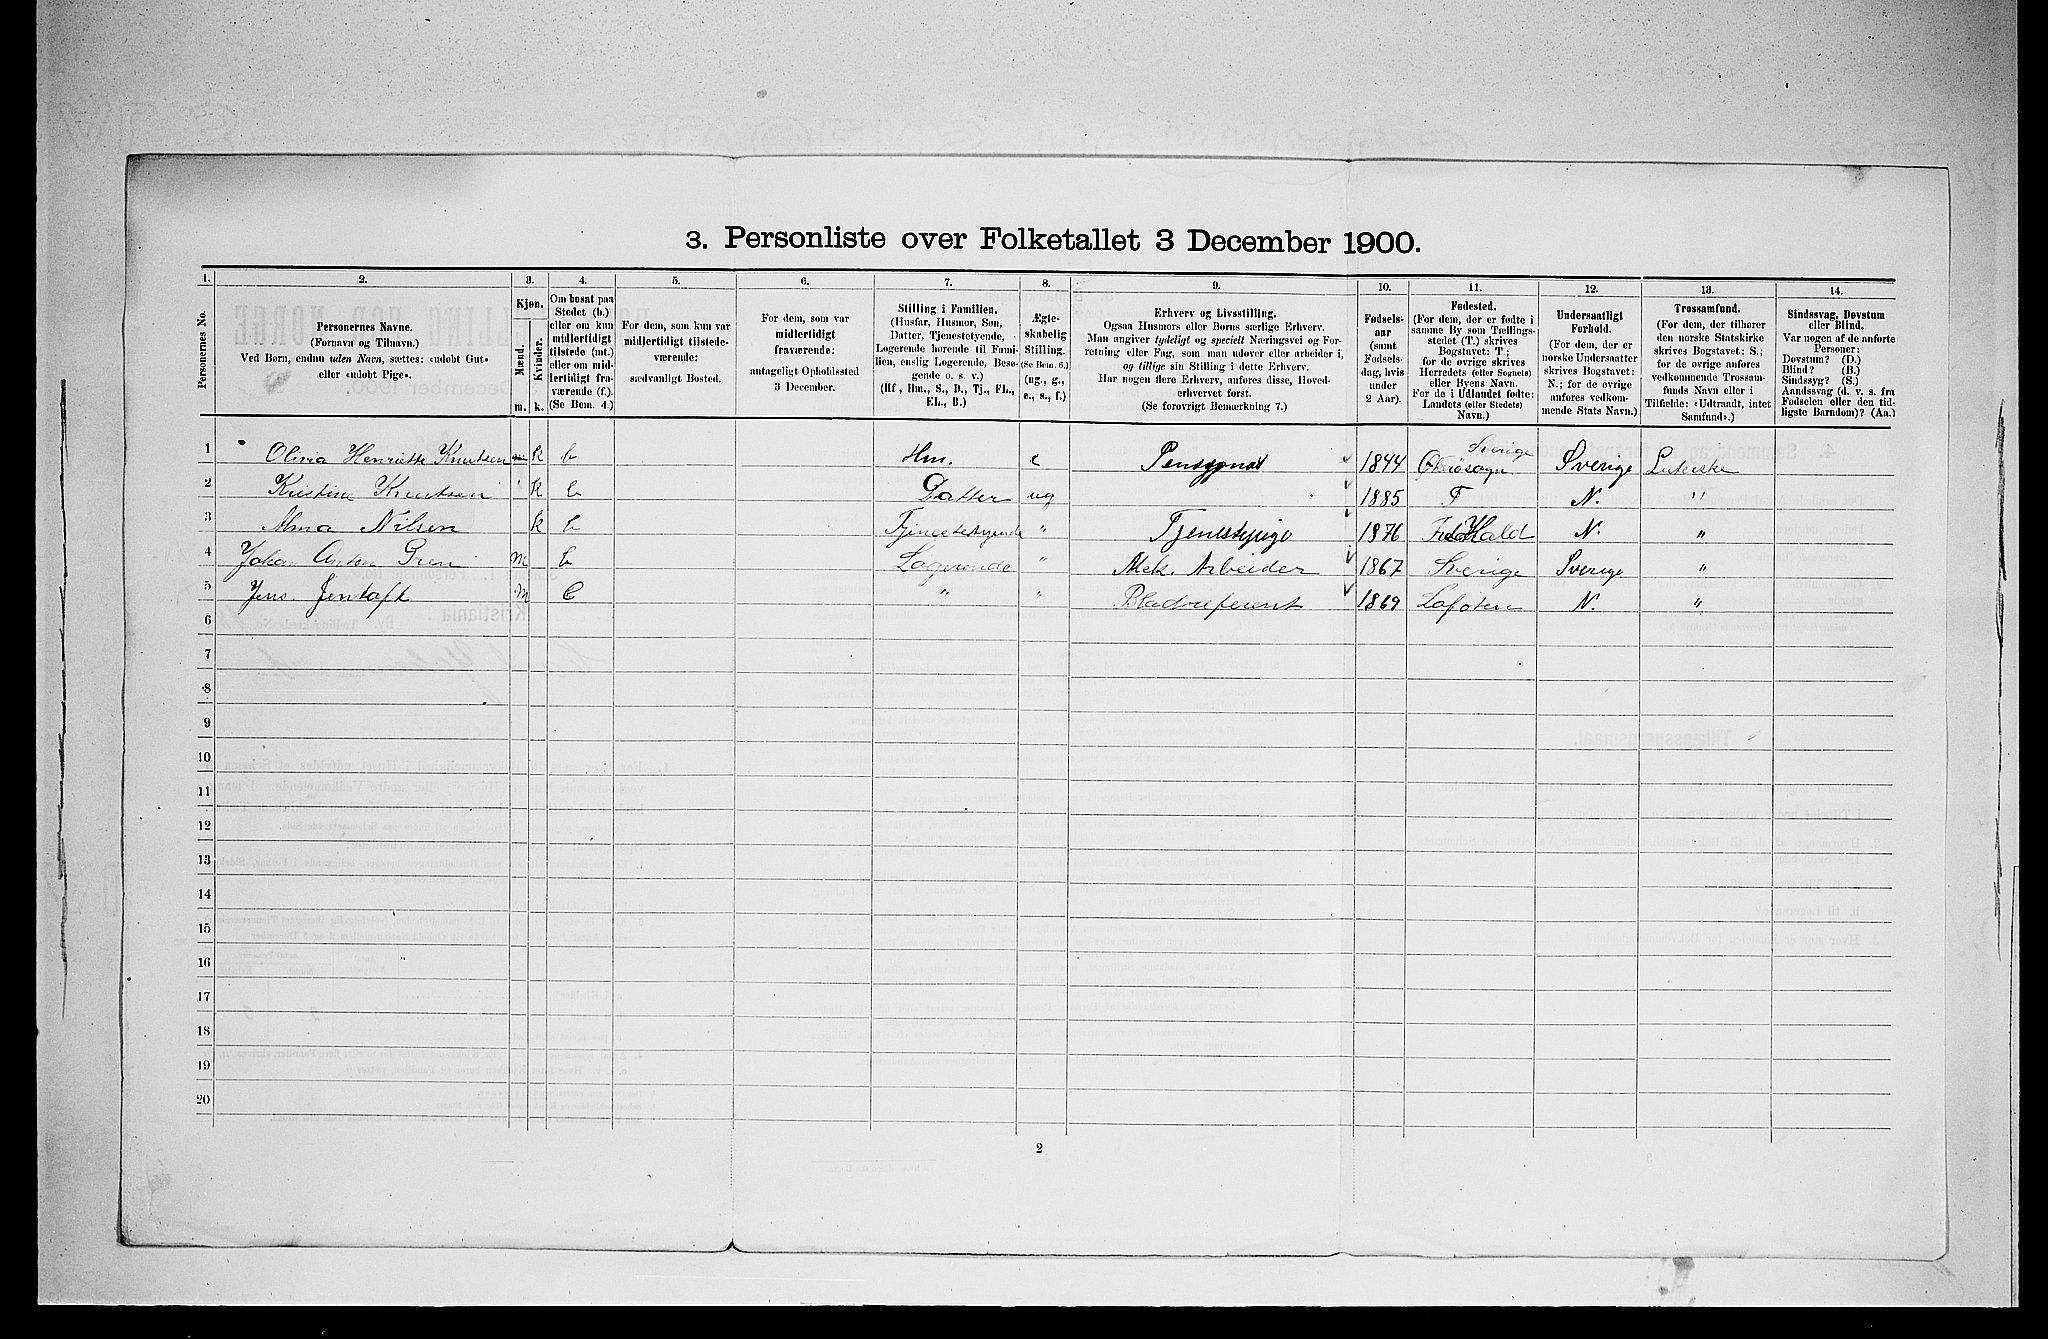 3. Personliste over Folketallet 3 December 1900.
1. 2. 3. 4. 5. 6. 7. 8. 9. 10. 11. 12. 13. 14.
Personernes No.
Personernes Navne.
(Fornavn og Tilnavn.)
Ved Børn, endnu uden Navn, sættes: «udøbt Gut»
eller «udøbt Pige».
Kjøn.
Mænd.
Kvinder.
m. k.
Om bosat paa
Stedet (b.)
eller om kun
midlertidigt
tilstede (mt.)
eller om mid-
lertidigt fra-
værende (f.).
(Se Bem. 4.)
For dem, som kun var
midlertidigt tilstede-
værende:
sædvanligt Bosted.
For dem, som var
midlertidigt
fraværende:
antageligt Opholdssted
3 December.
Stilling i Familien.
(Husfar, Husmor, Søn,
Datter, Tjenestetyende,
Logerende hørende til Fami-
lien, enslig Logerende, Besø-
gende o. s. v.)
(Hf., Hm., S., D., Tj., FL.,
EL., B.)
Ægte-
skabelig
Stilling.
(Se Bem. 6.)
(ug., g.,
e., s., f.)
Erhverv og Livsstilling.
Ogsaa Husmors eller Børns særlige Erhverv.
Man angiver tydeligt og specielt Næringsvei og For-
retning eller Fag, som man udøver eller arbeider i,
og tillige sin Stilling i dette Erhverv.
Har nogen flere Erhverv, anføres disse, Hoved-
erhvervet først.
(Se forøvrigt Bemærkning 7.)
Fødsels-
aar
(samt
Fødsels-
dag, hvis
under
2 Aar).
Fødested.
(For dem, der er fødte i
samme By som Tællings-
stedet (T.) skrives
Bogstavet: T.;
for de øvrige skrives
Herredets (eller Sognets)
eller Byens Navn.
For de i Udlandet fødte:
Landets (eller Stedets)
Navn.)
Undersaatligt
Forhold.
(For dem, der er
norske Undersaatter
skrives Bogstavet:
N.; for de øvrige
anføres vedkom-
mende Stats Navn.)
Trossamfund.
(For dem, der tilhører
den norske Statskirke
skrives Bogstavet: S.;
for de øvrige anføres
vedkommende Trossam-
funds Navn eller i
Tilfælde: «Udtraadt, intet
Samfund».)
Sindssvag, Døvstum
eller Blind.
Var nogen af de anførte
Personer:
Døvstum? (D.)
Blind? (B.)
Sindssyg? (S.)
Aandssvag (d. v. s. fra
Fødselen eller den tid-
ligste Barndom)? (Aa.)
1 Olivia Henriette Knutsen k b Hm. e 1844 Sverige Sverige Luterske
2 Kristine Knutsen k b Datter ug 1885 T N. "
3 Alma Nilsen k b Tjenestetyende " Tjenestepige 1876 FredHald N. "
4 Johan Anton Gren m b Logerende " Mek. Arbeider 1867 Sverige Sverige "
5 Jens Jentoft m b " " Bladreferent 1869 Lofoten N. "
6
7
8
9
10
11
12
13
14
15
16
17
18
19
20
2